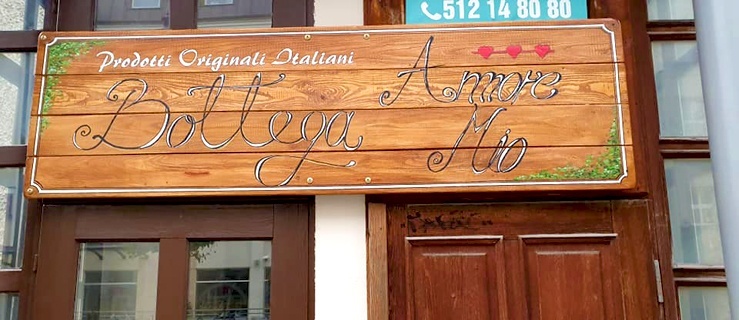 512 14 80 80
Prodotti Originali Italiani
Bottega
Amore
Mio